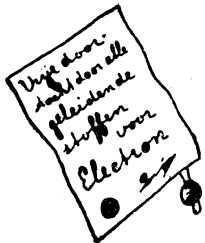 Vrije door-
tocht door alle
geleidende
stoffen
voor
Electron